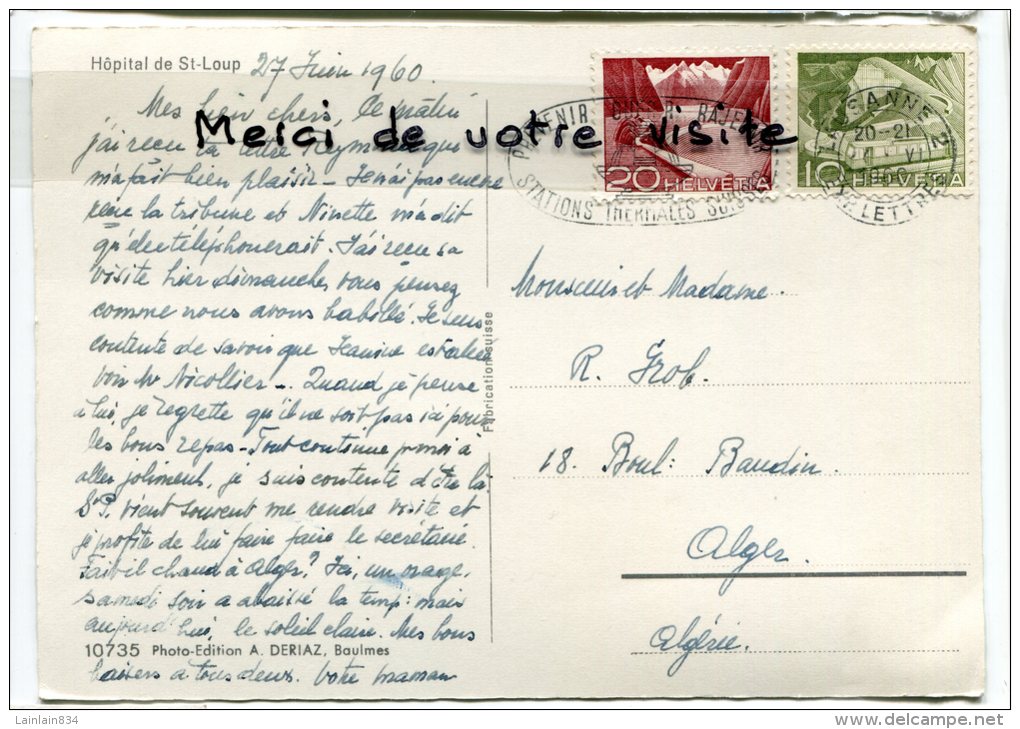 Hôpital de St-Loup 27 Juin 1960.
Mes bien chers, Ce matin
j'ai reçu la lettre qui
m'a fait bien plaisir - Je n'ai pas encore
reçu la tribune et Ninette m'a dit
qu'elle téléphonerait. J'ai reçu sa
visite hier dimanche, vous pensez
comme nous avons babillé. Je suis
contente de savoir que Jeanine est allée
voir Mr Nicollier -. Quand je pense
à lui, je regrette qu'il ne soit pas ici pour
les bons repas - Tout continue p. moi à
aller joliment, je suis contente d'être là
Sr P. vient souvent me rendre visite et
je profite de lui faire faire le secrétaire.
Fait-il chaud à Alger? Ici, un orage,
samedi soir a abaissé la temp: mais
aujourd'hui, le soleil claire. Mes bons
10735 Photo-Edition A. DERIAZ, Baulmes
baisers à tous deux. Votre maman
Merci de votre visite
Fabrication suisse
20 HELVETIA
10 HELVETIA
STATIONS THERMALES SUISSES
LAUSANNE 2
20-21
1960
EXP. LETTRES
Monsieur et Madame.
R. Grob.
18. Boul: Baudin.
Alger.
Algérie.
Lainlain834
www.delcampe.net